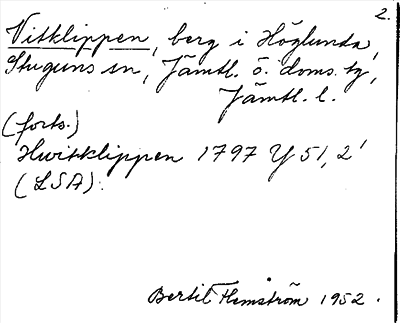 2.
Vitklippen, berg i Höglunda,
Stuguns sn, Jämtl. ö. doms. tg,
Jämtl. l.
(forts.)
Hvitklippen 1797 Y 51, 2'
(LSA).
Bertil Flemström 1952.